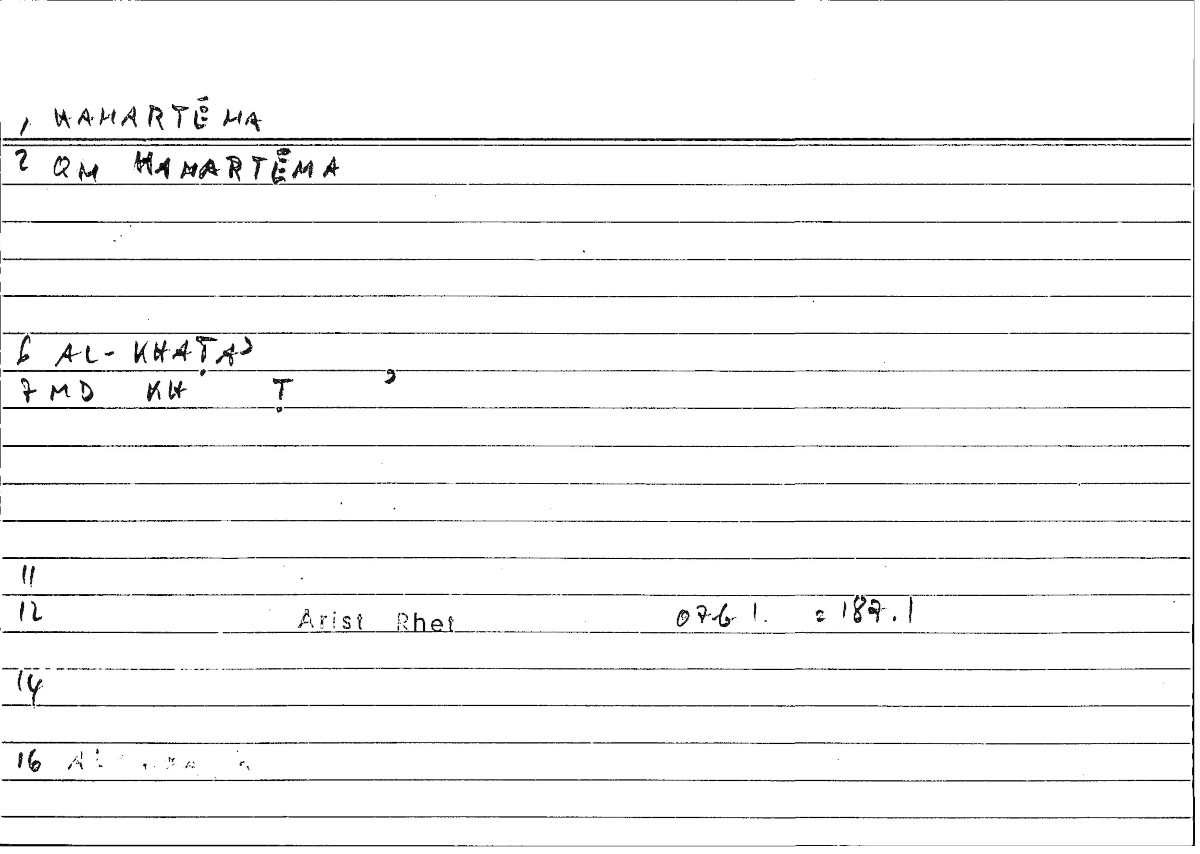 1 HAMARTĒMA
2 QM HAMARTĒMA
6 AL-KHAṬAʾ
7 MD KH Ṭ ʾ
11
12 Arist Rhet 076 1. = 187.1
14
16